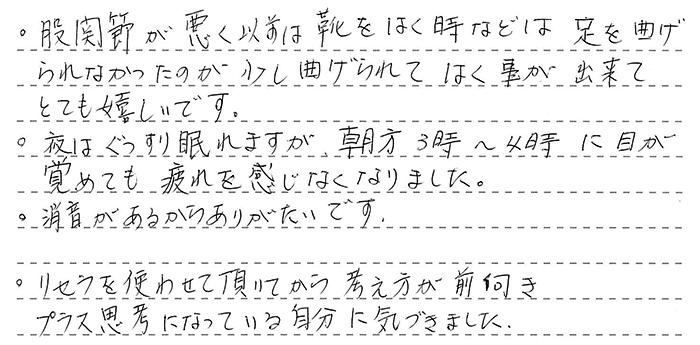 。股関節が悪く以前は靴をはく時などは足を曲げ
られなかったのが少し曲げられてはく事が出来て
とても嬉しいです。
。夜はぐっすり眠れますが、朝方3時～4時に目が
覚めても疲れを感じなくなりました。
。消音があるからありがたいです.
。リセラを使わせて頂いてから考え方が前向き
プラス思考になっている自分に気づきました.